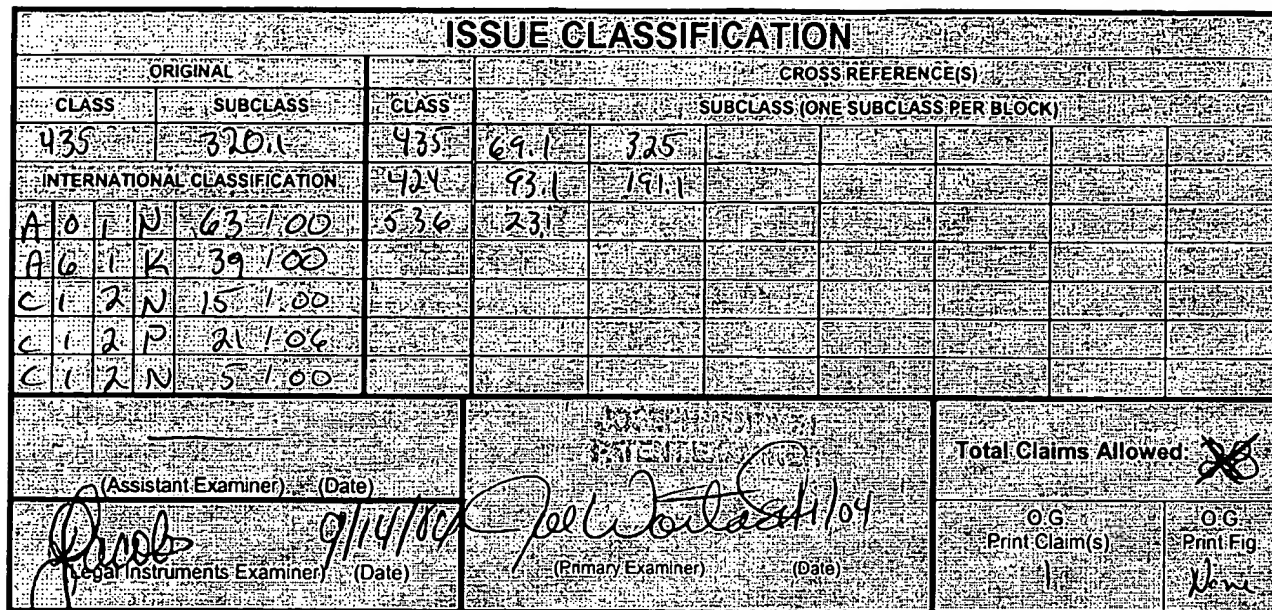 ISSUE CLASSIFICATION
ORIGINAL CROSS REFERENCE(S)
CLASS SUBCLASS CLASS SUBCLASS (ONE SUBCLASS PER BLOCK)
435 320.1 435 69.1 325
INTERNATIONAL CLASSIFICATION 424 93.1 191.1
A 0 1 N 63 / 00 536 23.1
A 6 1 K 39 / 00
C 1 2 N 15 / 00
C 1 2 P 21 / 06
C 1 2 N 5 / 00
(Assistant Examiner) (Date)
Jacob 9/14/04
(Legal Instruments Examiner) (Date)
PATENT
Joe
/04
(Primary Examiner) (Date)
Total Claims Allowed:
O.G. Print Claim(s)
1
O.G. Print Fig.
None